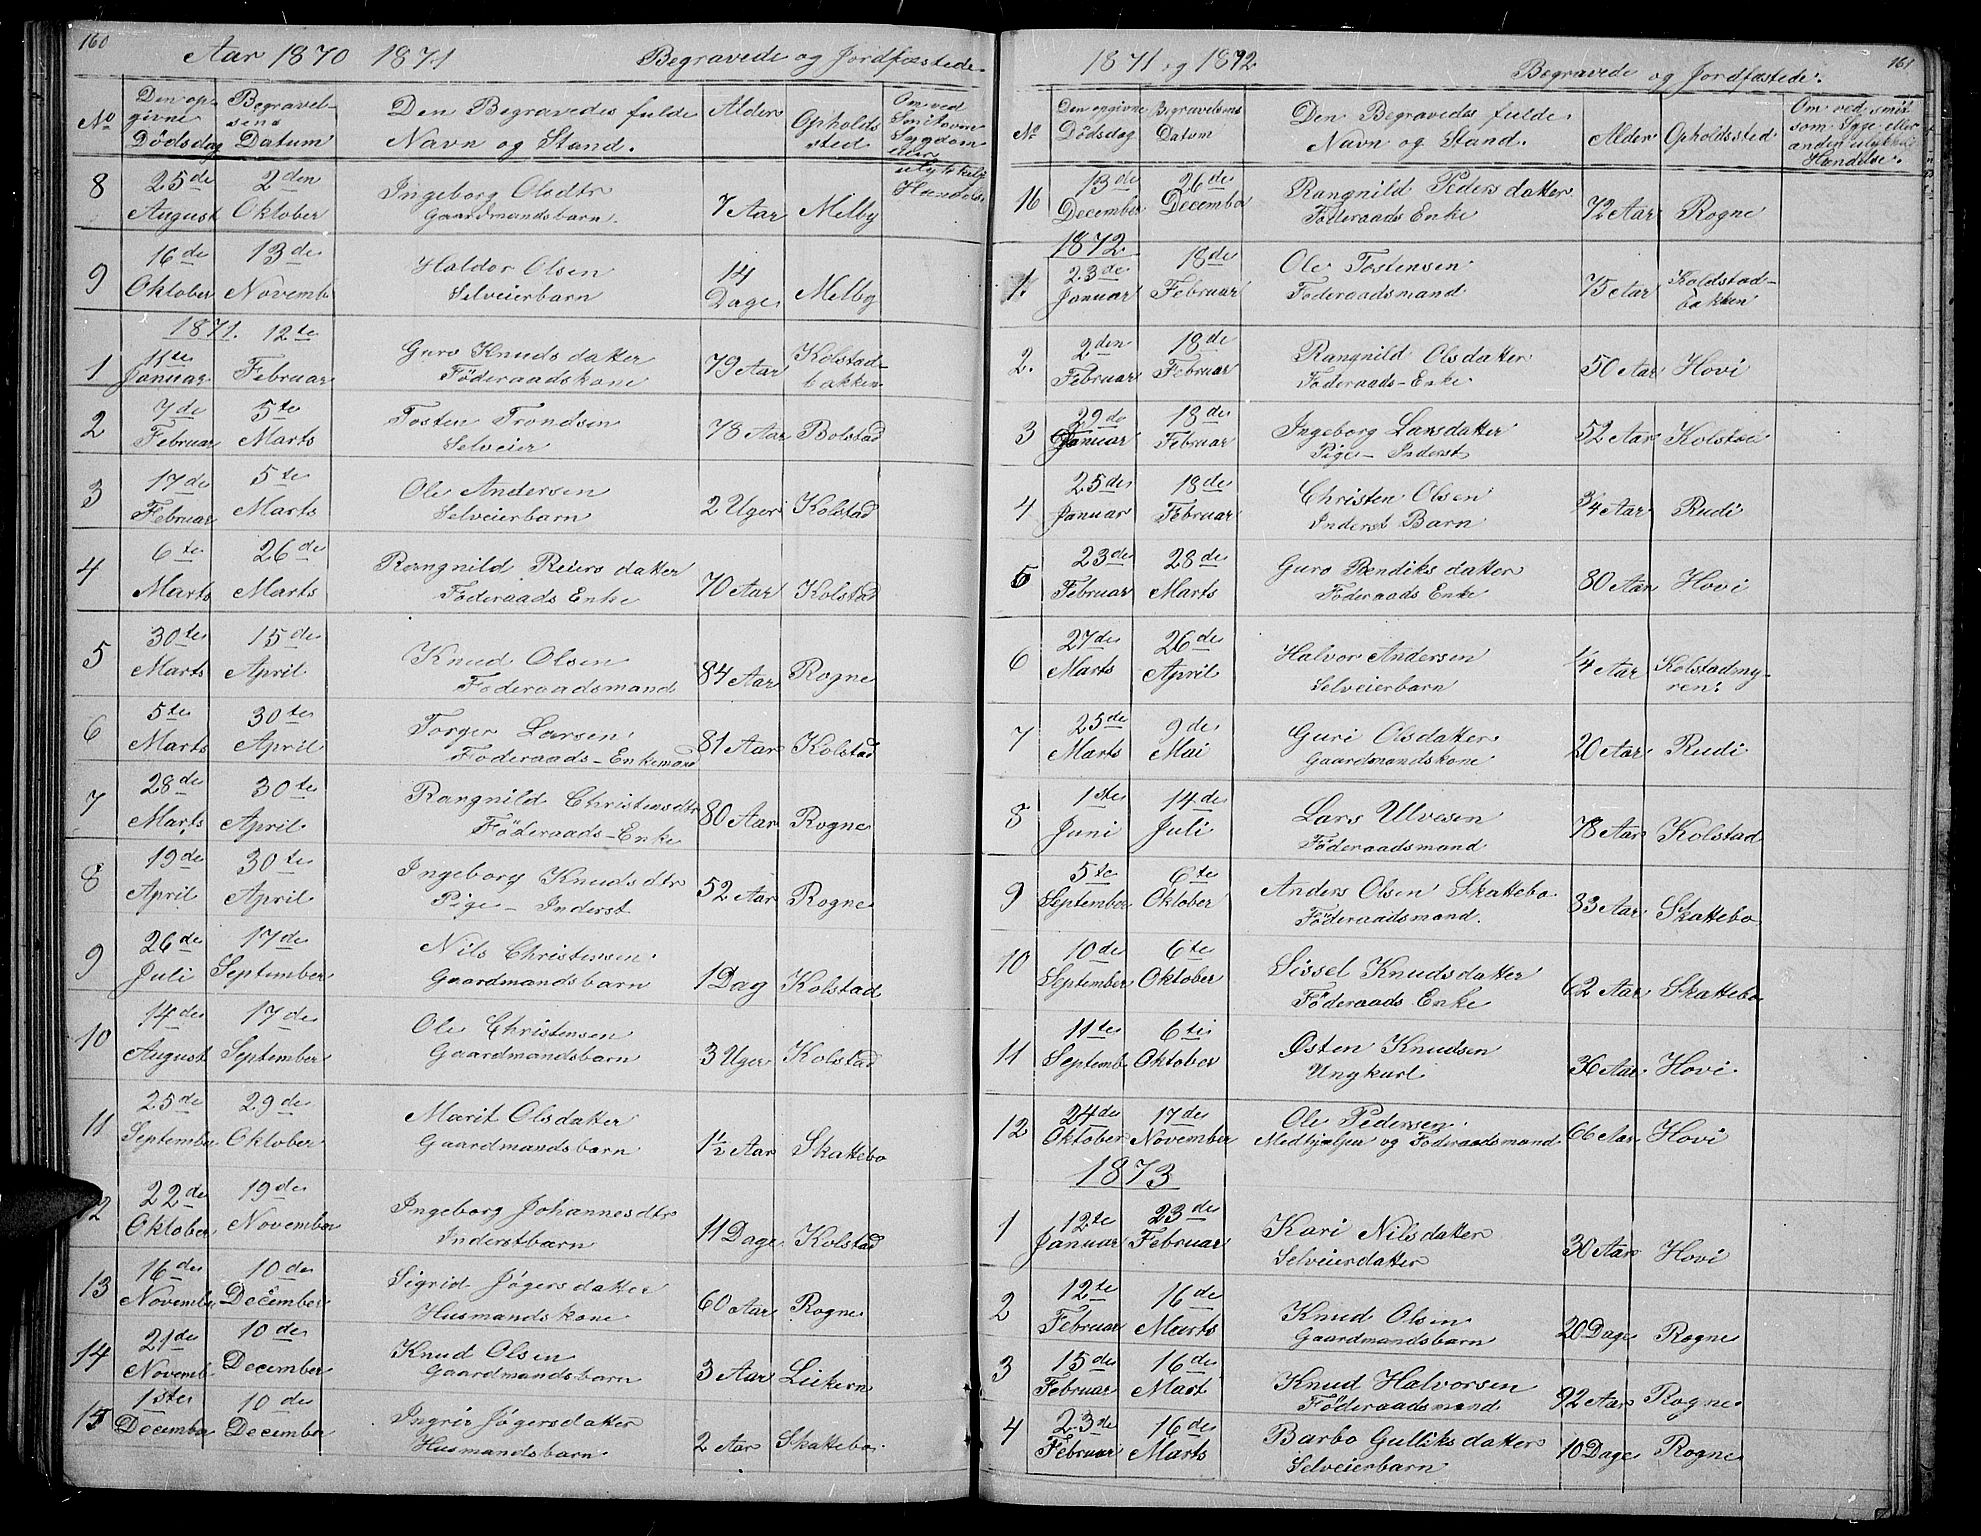 160
Aar 1870 1871 Begravede og Jordfæstede
No Den opgivne Dödsdag Begravelsens Datum Den Begravedes fulde Navn og Stand. Alder Opholdssted Om ved
8 25de August 2den Oktober Ingeborg Olsdtr Gaardmandsbarn. 7 Aar Melby
9 16de Oktober 13de Novemb Haldor Olsen Selveierbarn 14 Dage Melby
1871.
1 11te Januar 12te Februar Guro Knudsdatter Föderaadskone 79 Aar Kolstadbakken
2 7de Februar 5te Marts Tosten Trondsen Selveier 78 Aar Bolstad
3 17de Februar 5te Marts Ole Andersen Selveierbarn 2 Uger Kolstad
4 6te Marts 26de Marts Rangnild Reiersdatter Föderaads Enke 70 Aar Kolstad
5 30te Marts 15de April Knud Olsen Foderaadsmand 84 Aar Rogne
6 5te Marts 30te April Torger Larsen Foderaads-Enkemand 81 Aar Kolstad
7 28de Marts 30te April Rangnild Christensdtr Föderaads-Enke 80 Aar Rogne
8 19de April 30te April Ingeborg Knudsdtr Pige - Inderst 52 Aar Rogne
9 26de Juli 17de September Nils Christensen Gaardmandsbarn 1 Dag Kolstad
10 14de August 17de September Ole Christensen Gaardmandsbarn 3 Uger Kolstad
11 25de September 29de Oktober Marit Olsdatter Gaardmandsbarn 1½ Aar Skattebo
12 22de Oktober 19de November Ingeborg Johannesdtr Inderstbarn 11 Dage Kolstad
13 16de November 10de December Sigrid Jögersdatter Husmandskone 60 Aar Rogne
14 21de Novemb 10de December Knud Olsen Gaardmandsbarn 3 Aar
15 1ste December 10de December Ingrir Jögersdatter Husmandsbarn 2 Aar Skattebo
161
1871 og 1872 Begravede og Jordfæstede
No Den opgivne Dödsdag Begravelsens Datum Den Begravedes fulde Navn og Stand. Alder Opholdssted Om ved smitsom Syge eller anden ulykkel Hændelse.
16 13de December 26de December Rangnild Pedersdatter Föderaads Enke 72 Aar Rogne
1872
1. 23de Januar 18de Februar Ole Tostensen Foderaadsmand 75 Aar Koldstadbakken
2. 2den Februar 18de Februar Rangnild Olsdatter Foderaads-Enke 50 Aar Hovi
3 29de Januar 18de Februar Ingeborg Larsdatter Pige - Inderst 52 Aar Kolstad
4 25de Januar 18de Februar Christen Olsen Inderst Barn ¾ Aar Rudi
5 23de Februar 28de Marts Guro Bendiksdatter Föderaads Enke 80 Aar Hovi
6 27de Marts 26de April Halvor Andersen Selveierbarn ¼ Aar Kolstadmyren
7 25de Marts 9de Mai Guri Olsdatter Gaardmandskone 20 Aar Rudi
8 1ste Juni 14de Juli Lars Ulvesen Föderaadsmand 78 Aar Kolstad
9 5te September 6te Oktober Anders Olsen Skattebo Föderaadsmand. 83 Aar Skattebo
10 10de September 6te Oktober Sissel Knudsdatter Föderaads Enke 62 Aar Skattebo
11 11te Septemb 6te Oktober Østen Knudsen Ungkarl 36 Aar Hovi
12 24de Oktober 17de November Ole Pedersen Medhjelper og Föderaadsmand 66 Aar Hovi
1873
1 12te Januar 23de Februar Kari Nilsdatter Selveierdatter 30 Aar Hovi
2 12te Februar 16de Marts Knud Olsen Gaardmandsbarn 20 Dage Rogne
3 15de Februar 16de Mart Knud Halvorsen Föderaadsmand 92 Aar Rogne
4 23de Februar 16de Marts Barbo Gulliksdatter Selveierbarn 10 Dage Rogne